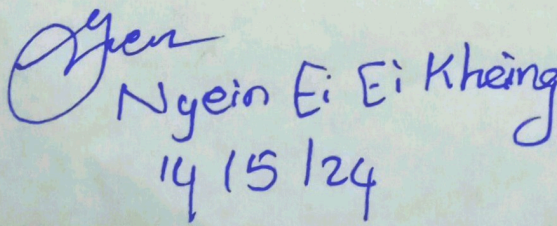 Nyein Ei Ei Kheing
14/5/24